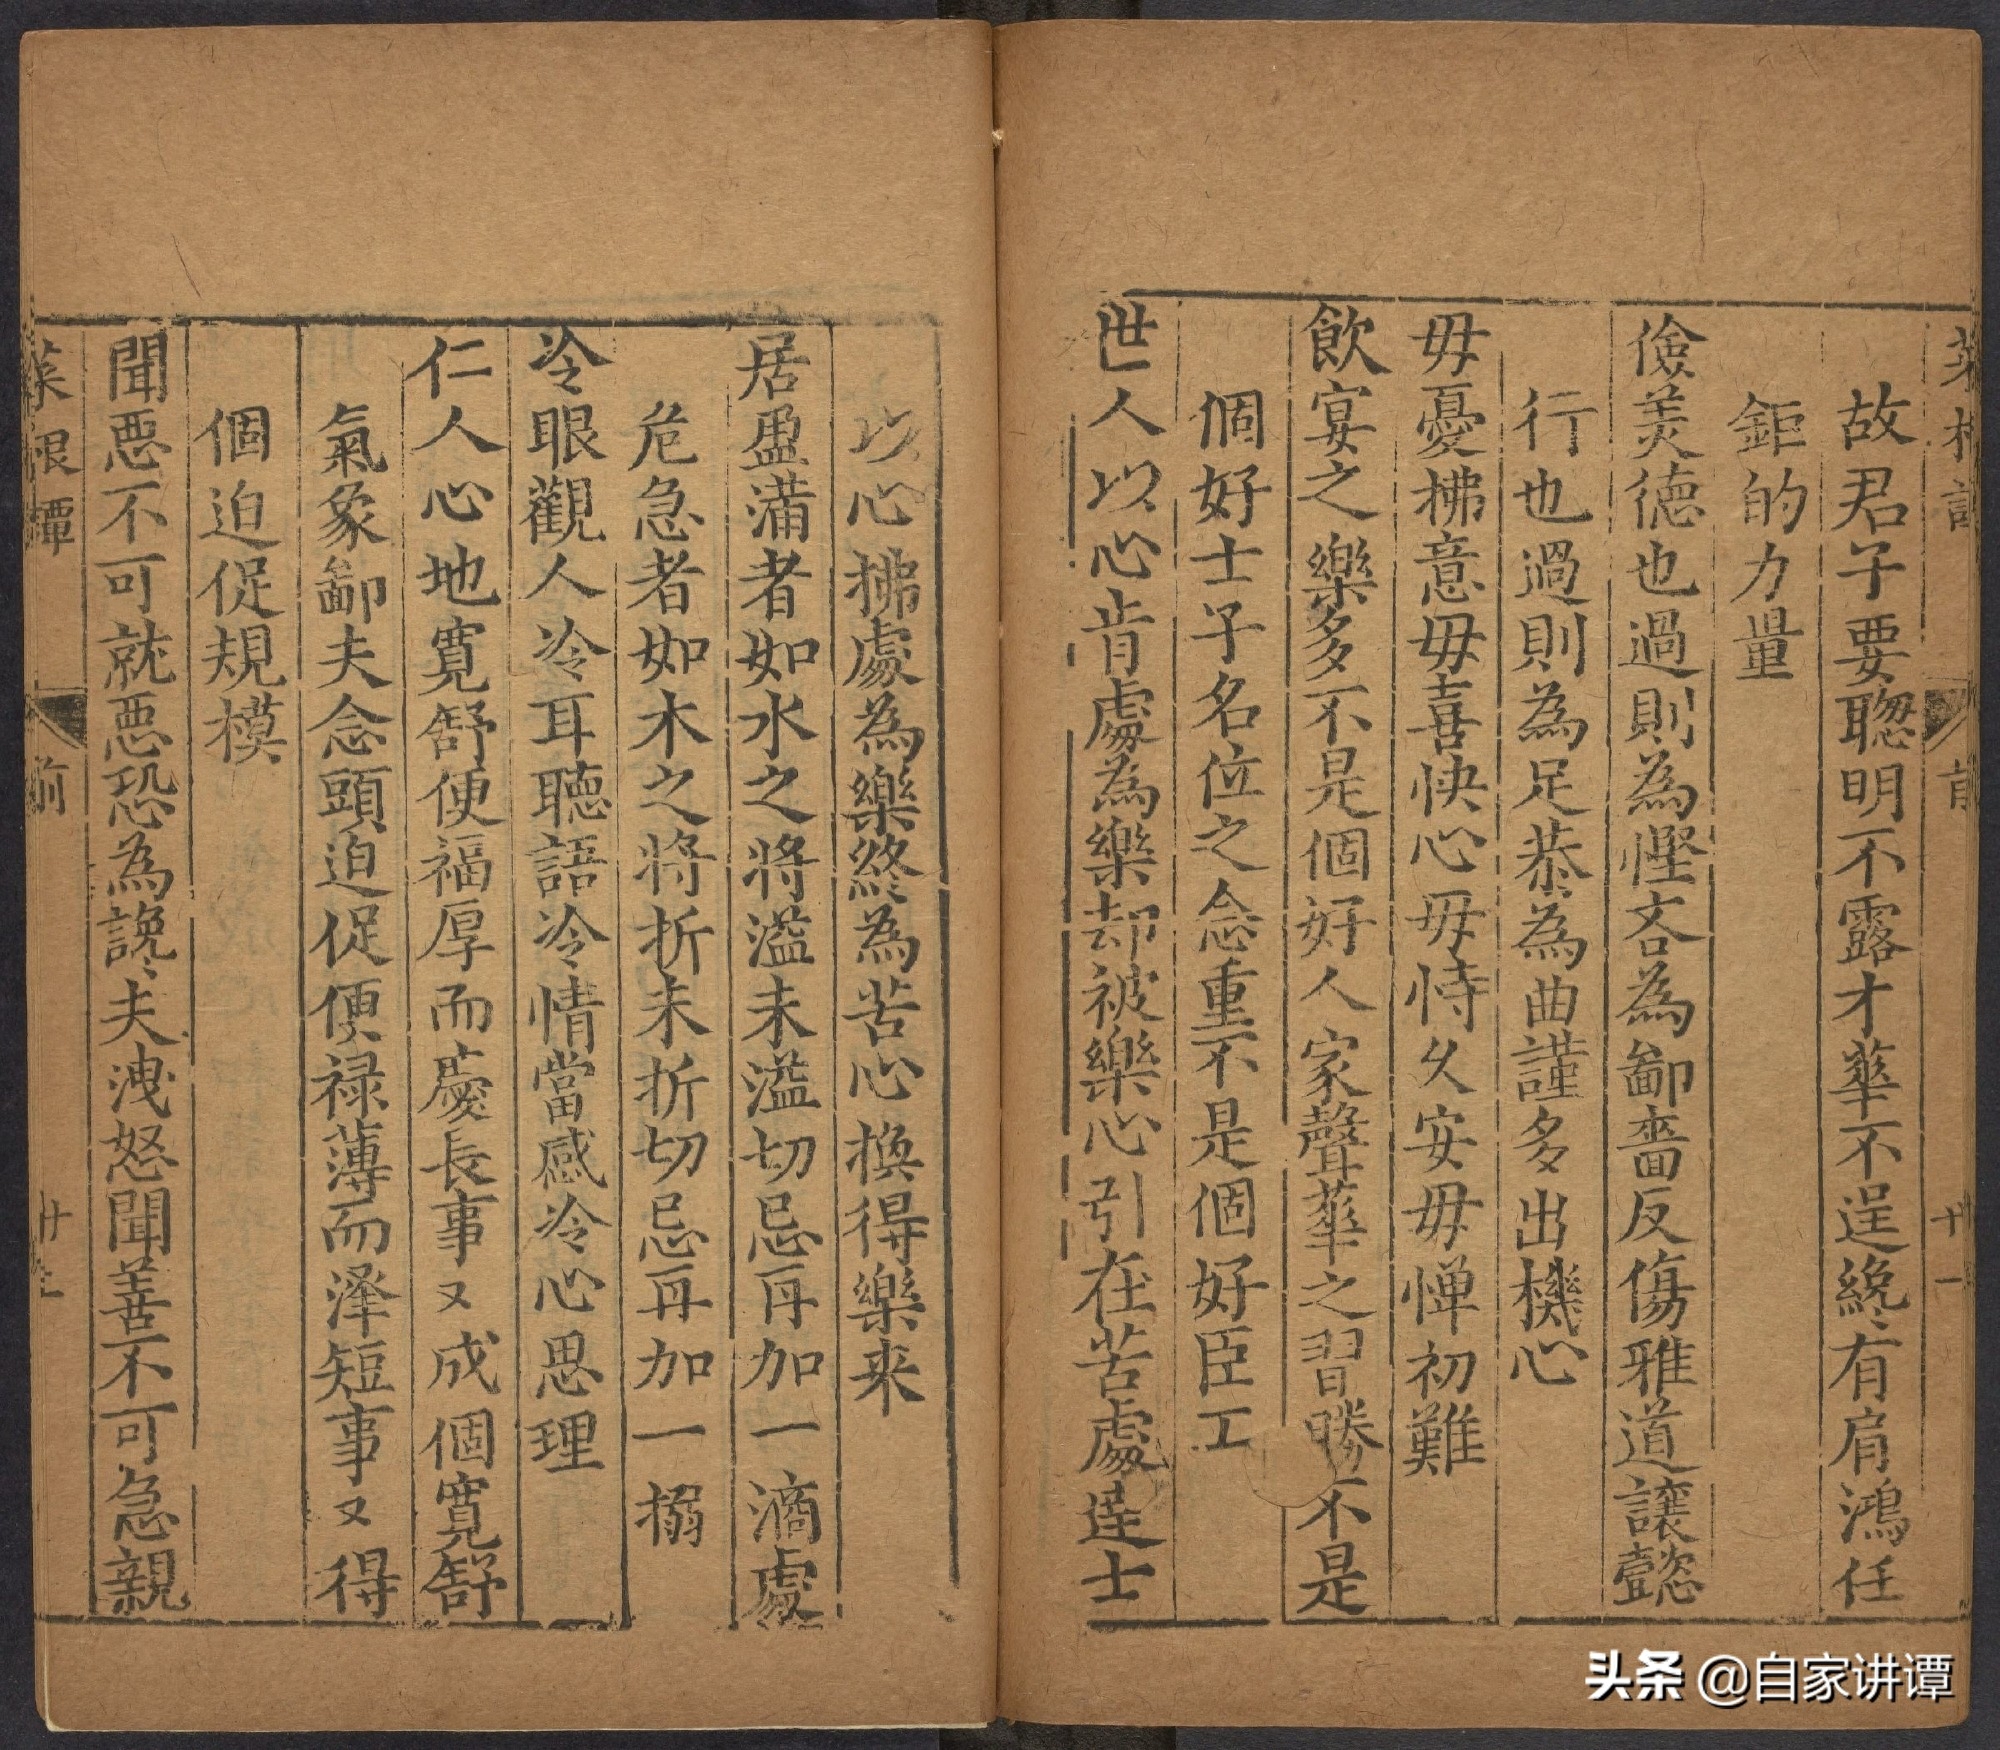 菜根譚
前
故君子要聰明不露才華不逞纔有肩鴻任
鉅的力量
儉美德也過則為慳吝為鄙嗇反傷雅道讓懿
行也過則為足恭為曲謹多出機心
毋憂拂意毋喜快心毋恃久安毋憚初難
飲宴之樂多不是個好人家聲華之習勝不是
個好士子名位之念重不是個好臣工
世人以心肯處為樂却被樂心引在苦處達士
以心拂處為樂終為苦心換得樂来
居盈滿者如水之將溢未溢切忌再加一滴處
危急者如木之將折未折切忌再加一搦
冷眼觀人冷耳聽語冷情當感冷心思理
仁人心地寬舒便福厚而慶長事又成個寬舒
氣象鄙夫念頭迫促便禄薄而澤短事又得
個迫促規模
聞惡不可就惡恐為讒夫洩怒聞善不可急親
菜根譚
前
头条 @自家讲谭